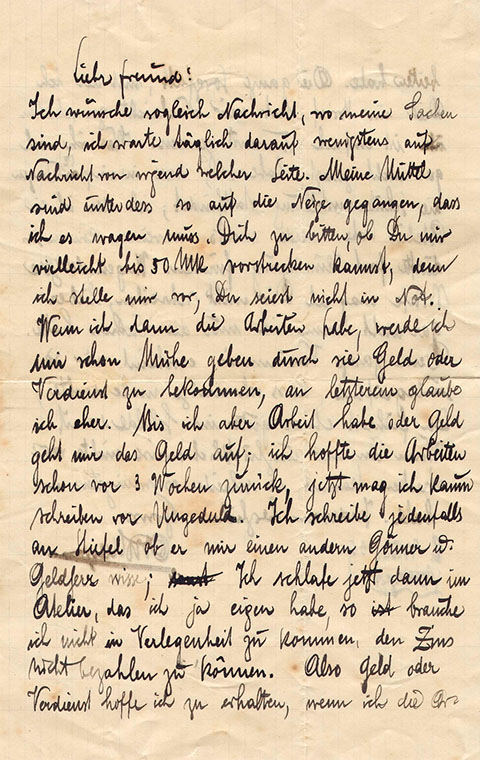 Liebr Freund!
Ich wünsche sogleich Nachricht, wo meine Sachen
sind, ich warte täglich darauf wenigstens auf
Nachricht von irgend welcher Seite. Meine Mittel
sind unterdess so auf die Neige gegangen, dass
ich es wagen muss. Dich zu bitten, ob Du mir
vielleicht bis 50 Mk vorstrecken kannst, denn
ich stelle mir vor, Du seiest nicht in Not.
Wenn ich dann die Arbeiten habe, werde ich
mir schon Mühe geben durch sie Geld oder
Verdienst zu bekommen, an letzterem glaube
ich eher. Bis ich aber Arbeit habe oder Geld
geht mir das Geld auf; ich hoffte die Arbeiten
schon vor 3 Wochen zurück, jetzt mag ich kaum
schreiben vor Ungeduld. Ich schreibe jedenfalls
an ob er mir einen andern Gönner u.
wisse; Ich schlafe jetzt dann im
Atelier, das ich ja eigen habe, so ist brauche
ich nicht in Verlegenheit zu kommen, den Zins
nicht bezahlen zu können. Also Geld oder
Verdienst hoffe ich zu erhalten, wenn ich die Ar=